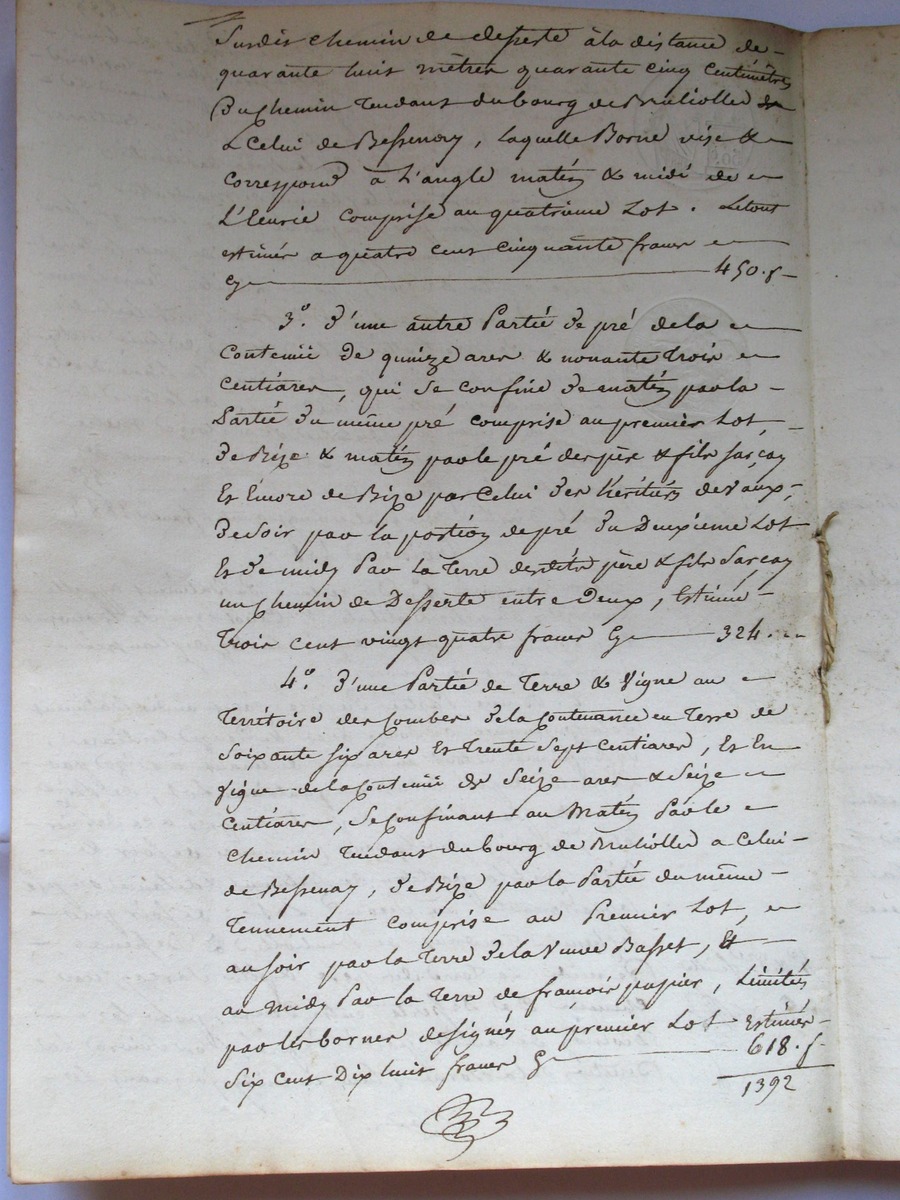 Susdit chemin de desserte à la distance de
quarante huit mètres quarante cinq centimètres
Du Chemin Tendant du bourg de Bruliolles
à Celui de Bessenay, laquelle Borne vise &
correspond à l'angle matin & midi de
l'Ecurie comprise au quatrième Lot. Le tout
estimés a quatre cent cinquante francs
Cy 450.f
3°. D'une autre Partie de pré de la
Contenue de quinze ares & nonante Trois
Centiares, qui se confine de matin par la
Partie du même pré comprise au premier Lot,
de Bize & matin par le pré des père & fils Sarcay
Et Encore de Bize par Celui des héritiers de Vaux,
de soir par la portion de pré du Deuxième Lot
Et de midy Par la Terre desdits père & fils Sarcay
un Chemin de Desserte entre Deux, Estimée
Trois cent vingt quatre francs Cy 324.
4°. D'une Partie de Terre & Vigne au
Territoire des Combes de la Contenance en Terre de
Soixante six ares Et Trente Sept Centiares, Et En
Vigne de la Contenue de Seize ares & Seize
Centiares, Se Confinant au Matin Par le
Chemin Tendant du bourg de Brulliolles a Celui
de Bessenay, de Bize par la Partie du même
Tennement comprise au Premier Lot,
au soir par la Terre de la Veuve Basset, Et
au midy Par la Terre de francois papier, Limités
par les bornes designés au premier Lot estimés
Six Cent Dix huit francs Cy 618.f
1392